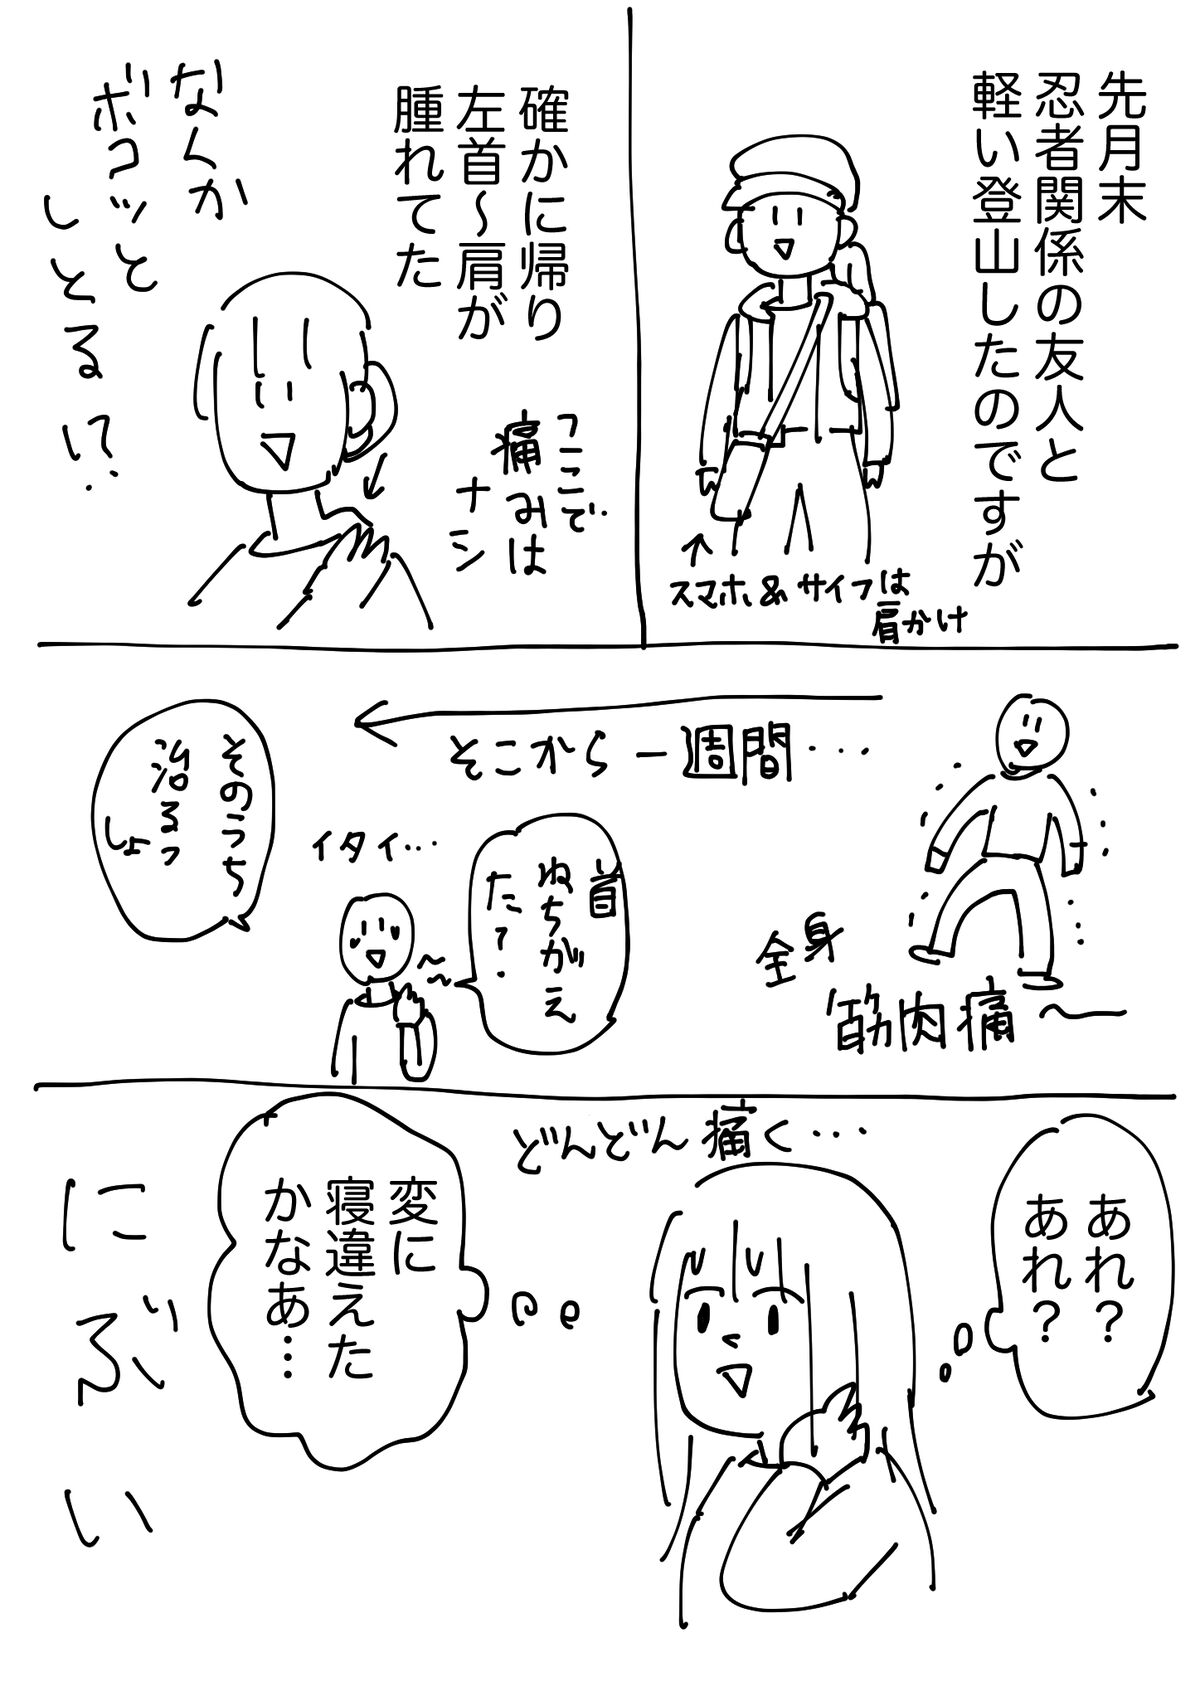 先月末
忍者関係の友人と
軽い登山したのですが
スマホ&サイフは
肩かけ
確かに帰り
左首～肩が
腫れてた
ここで
痛みは
ナシ
なんか
ボコッと
しとる!?
全身
筋肉痛～
そこから一週間・・・
首
ねちがえ
た?
イタイ・・・
そのうち
治るっ
しょ
あれ?
あれ?
どんどん痛く・・・
変に
寝違えた
かなあ…
にぶい